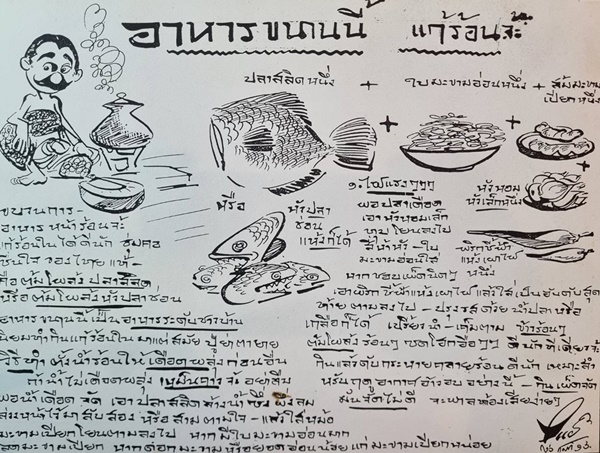 อาหารขนานนี้ แก้ร้อนจ้ะ
ปลาสลิดหนึ่ง + ใบมะขามอ่อนหนึ่ง + ส้มมะขาม
เปียกหนึ่ง
หรือ
หัวปลา
ช่อน
แห้งก็ได้
หัวหอม
หัวเล็กหนึ่ง
พริกขี้ฟ้า
แห้งเผาไฟ
หนึ่ง
๑. ไฟแรงๆๆๆ
พอปลาเดือด
เอาหัวหอมเล็ก
ทุบ โยนลงไป
ใบ
มะขามอ่อนใส่
หากชอบเผ็ดนิดๆ
เอาพริกชี้ฟ้าแห้งเผาไฟ แล้วใส่เป็นอันดับสุด
ท้าย ตามลงไป - ปรุงรสด้วย น้ำปลา หรือ
เกลือก็ได้ เปรี้ยวนำ - เค็มตาม ข้าวร้อนๆ
ต้มโผล่งร้อนๆ ซดโฮกฮือๆ
กินแล้วดับกระหายคลายร้อน ดีนัก เหมาะสำ
หรับฤดูอากาศอ้าวอบ อย่างนี้ - กินเผ็ดจัด
มันจัดไม่ดี จะพาลท้องเสียง่ายๆ
ขบวนการ -
อาหาร หน้าร้อนจ้ะ
แก้ร้อนในได้ดีนัก ชุ่มคอ
ชื่นใจ ของไทยแท้ -
คือ ต้มโผล่งปลาสลิด
หรือ ต้มโผล่งหัวปลาช่อน
อาหารขนานนี้ เป็นอาหารระดับชาวบ้าน
นิยมทำกินแก้ร้อนใน มาแต่สมัย ปู่ ยา ตา ยาย
วิธีทำ ตั้งน้ำร้อนให้เดือดพล่งก่อนอื่น
ถ้าน้ำไม่เดือดพล่ง เหม็นคาวจ้ะ อย่าลืม
พอน้ำเดือดจัด เอาปลาสลิดล้างน้ำซึ่งผึ่งลม
สองหน้าไว้มาสับสอง หรือสามตามใจ - แล้วใส่หม้อ
มะขามเปียกโยนตามลงไป หากมีใบมะขามอ่อนมาก
ลดมะขามเปียก หากดอกมะขามหรือยอดอ่อนน้อย แก่มะขามเปียกหน่อย